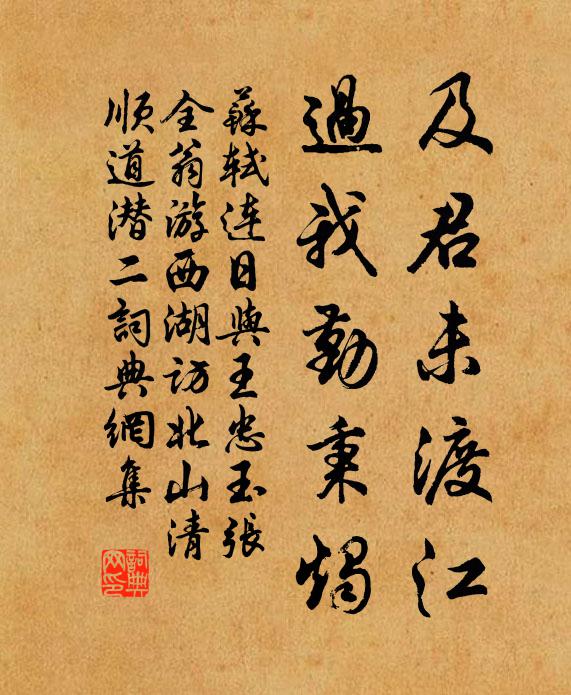 及君未渡江
過我勤秉燭
蘇軾連日與王忠玉張
全翁游西湖訪北山清
順道潜二詞典網集
詞典網印